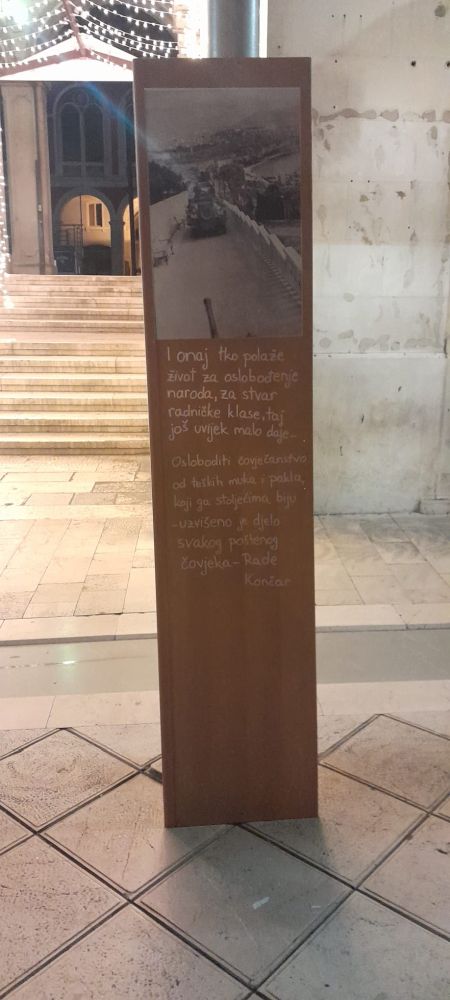 I onaj tko polaže
život za oslobođenje
naroda, za stvar
radničke klase, taj
još uvijek malo daje...
Osloboditi čovječanstvo
od teških muka i pakla,
koji ga stoljećima biju
- uzvišeno je djelo
svakog poštenog
čovjeka - Rade
Končar